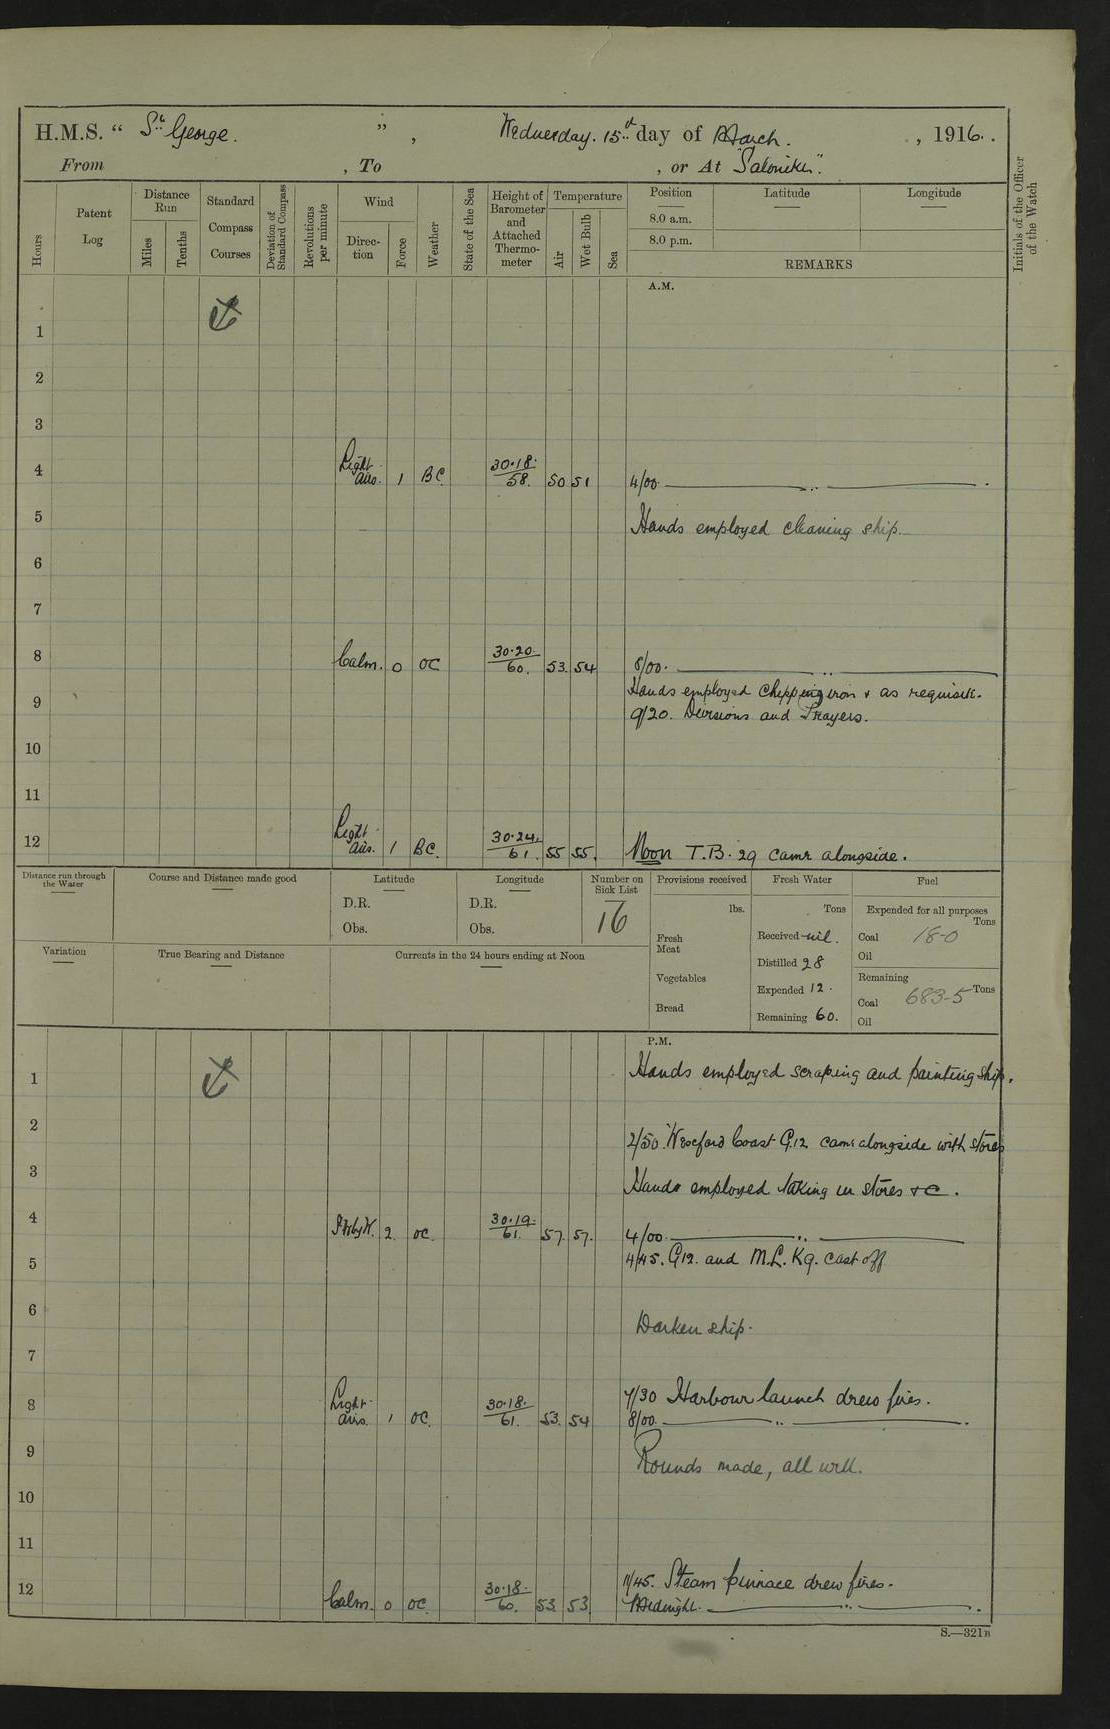 H.M.S. “ St. George. ” , Wednesday. 15th day of March. , 1916.
From , To , or At "Salonika".
Hours
Patent Log
Distance Run
Miles
Tenths
Standard Compass Courses
Deviation of Standard Compass
Revolutions per minute
Wind
Direction
Force
Weather
State of the Sea
Height of Barometer and Attached Thermometer
Temperature
Air
Wet Bulb
Sea
Position
Latitude
Longitude
8.0 a.m.
8.0 p.m.
REMARKS
Initials of the Officer of the Watch
A.M.
1
2
3
4 Light airs. 1 BC. 30.18. 58. 50 51 4/00. ..
5 Hands employed cleaning ship.
6
7
8 Calm. 0 OC 30.20. 60. 53. 54 8/00. ..
Hands employed chipping iron & as requisite.
9
9/20. Divisions and Prayers.
10
11
12 Light airs. 1 BC. 30.24. 61. 55 55. Noon T.B. 29 came alongside.
Distance run through the Water
Course and Distance made good
Latitude
D.R.
Obs.
Longitude
D.R.
Obs.
Number on Sick List
16
Provisions received
lbs.
Fresh Meat
Vegetables
Bread
Fresh Water
Tons
Received nil.
Distilled 28
Expended 12.
Remaining 60.
Fuel
Expended for all purposes
Tons
Coal 18-0
Oil
Remaining
Coal 683-5 Tons
Oil
Variation
True Bearing and Distance
Currents in the 24 hours ending at Noon
P.M.
1 Hands employed scraping and painting ship.
2
2/50. Wexford Coast G.12 came alongside with stores
3
Hands employed taking in stores &c.
4 2. OC. 30.19. 61. 57. 57. 4/00. ..
4/45. G12. and M.L. K9. cast off
5
6
Darken ship.
7
7/30 Harbour launch drew fires.
8 Light airs. 1 OC. 30.18. 61. 53. 54 8/00. ..
9 Rounds made, all well.
10
11
11/45. Steam pinnace drew fires.
12 Calm. 0 OC. 30.18. 60. 53. 53. Midnight. ..
S.—321B